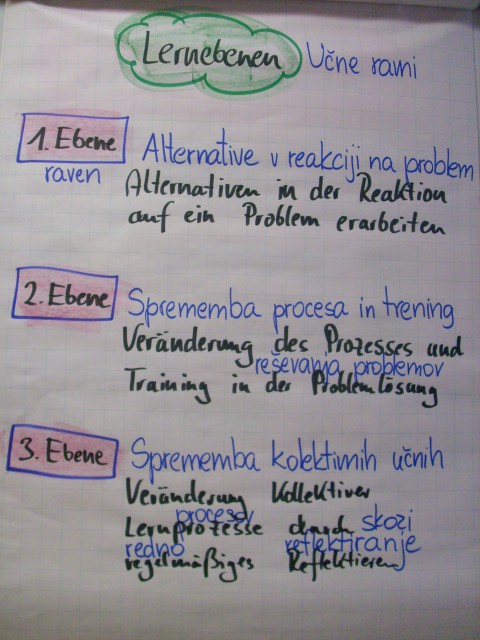 Lernebenen Učne rami
1. Ebene Alternative v reakciji na problem
raven Alternativen in der Reaktion
auf ein Problem erarbeiten
2. Ebene Sprememba procesa in trening
Veränderung des Prozesses und
reševanja problemov
Training in der Problemlösung
3. Ebene Sprememba kolektivnih učnih
Veränderung Kollektiver
procesov
Lernprozesse durch skozi
redno reflektiranje
regelmäßiges Reflektieren